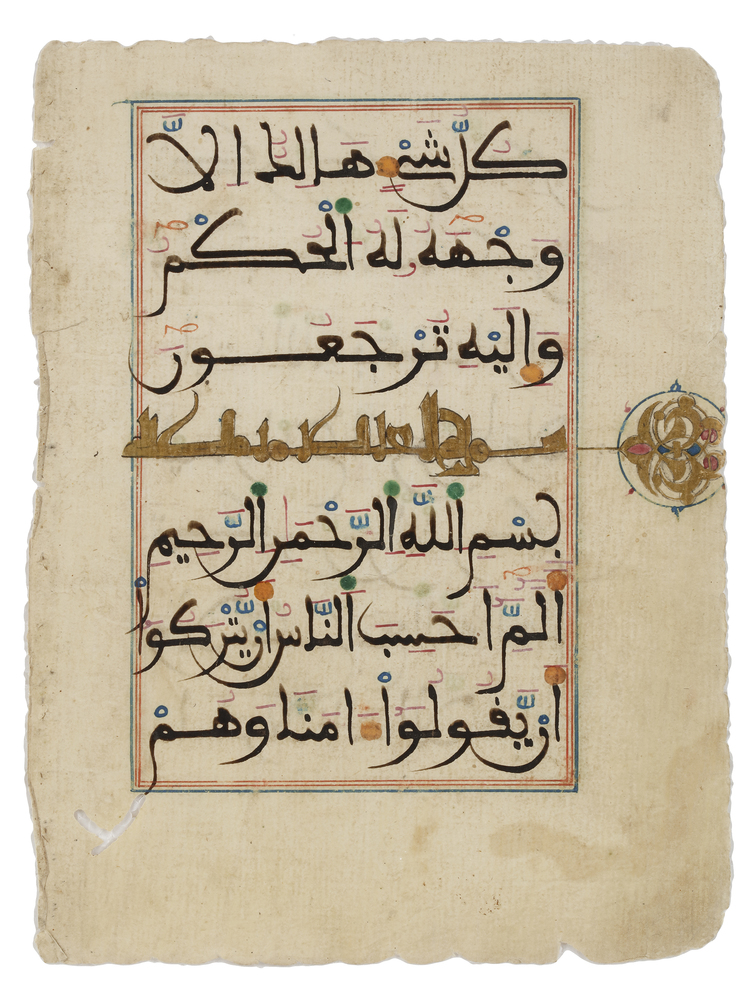 كُلُّ شَيْءٍ هَالِكٌ اِلَّا
وَجْهَهُ لَهُ الْحُكْمُ
وَاِلَيْهِ تُرْجَعُونَ
سورة العنكبوت مكية
بِسْمِ اللَّهِ الرَّحْمَنِ الرَّحِيمِ
الٓمِّٓ اَحَسِبَ النَّاسُ اَنْ يُّتْرَكُوا
اَنْ يَّقُولُوا ءَامَنَّا وَهُمْ